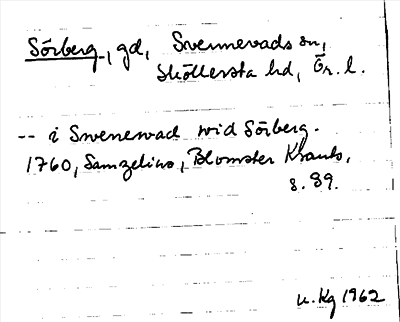 Sörberg, gd, Svennevads sn,
Sköllersta hd, Ör. l.
-- i Swenewad wid Sörberg.
1760, Samzelius, Blomster Krants,
s. 89.
u. Kg 1962